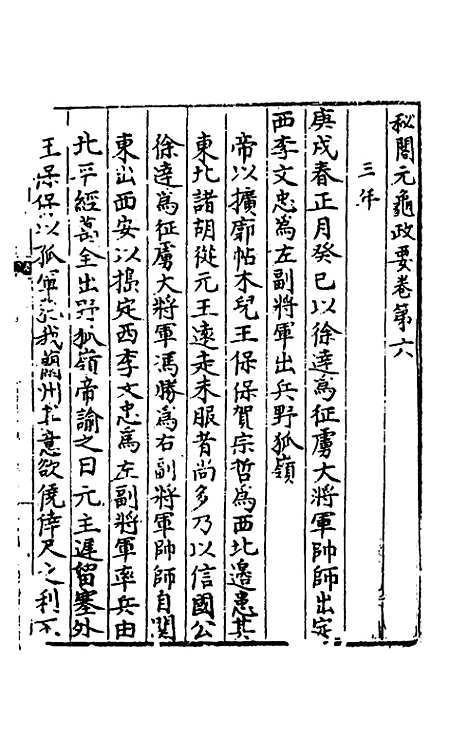 秘閣元龜政要卷第六
三年
庚戌春正月癸巳以徐達為征虜大將軍帥師出定
西李文忠為左副將軍出兵野狐嶺
帝以擴廓帖木兒王保保賀宗哲為西北邊患其
東北諸胡從元王遠走未服者尚多乃以信國公
徐達為征虜大將軍馮勝為右副將軍帥師自関
東出西安以搗定西李文忠為左副將軍率兵由
北平經萬全出野狐嶺帝諭之曰元主遲留塞外
王保保以孤軍犯我蘭州其意欲僥倖尺之利不